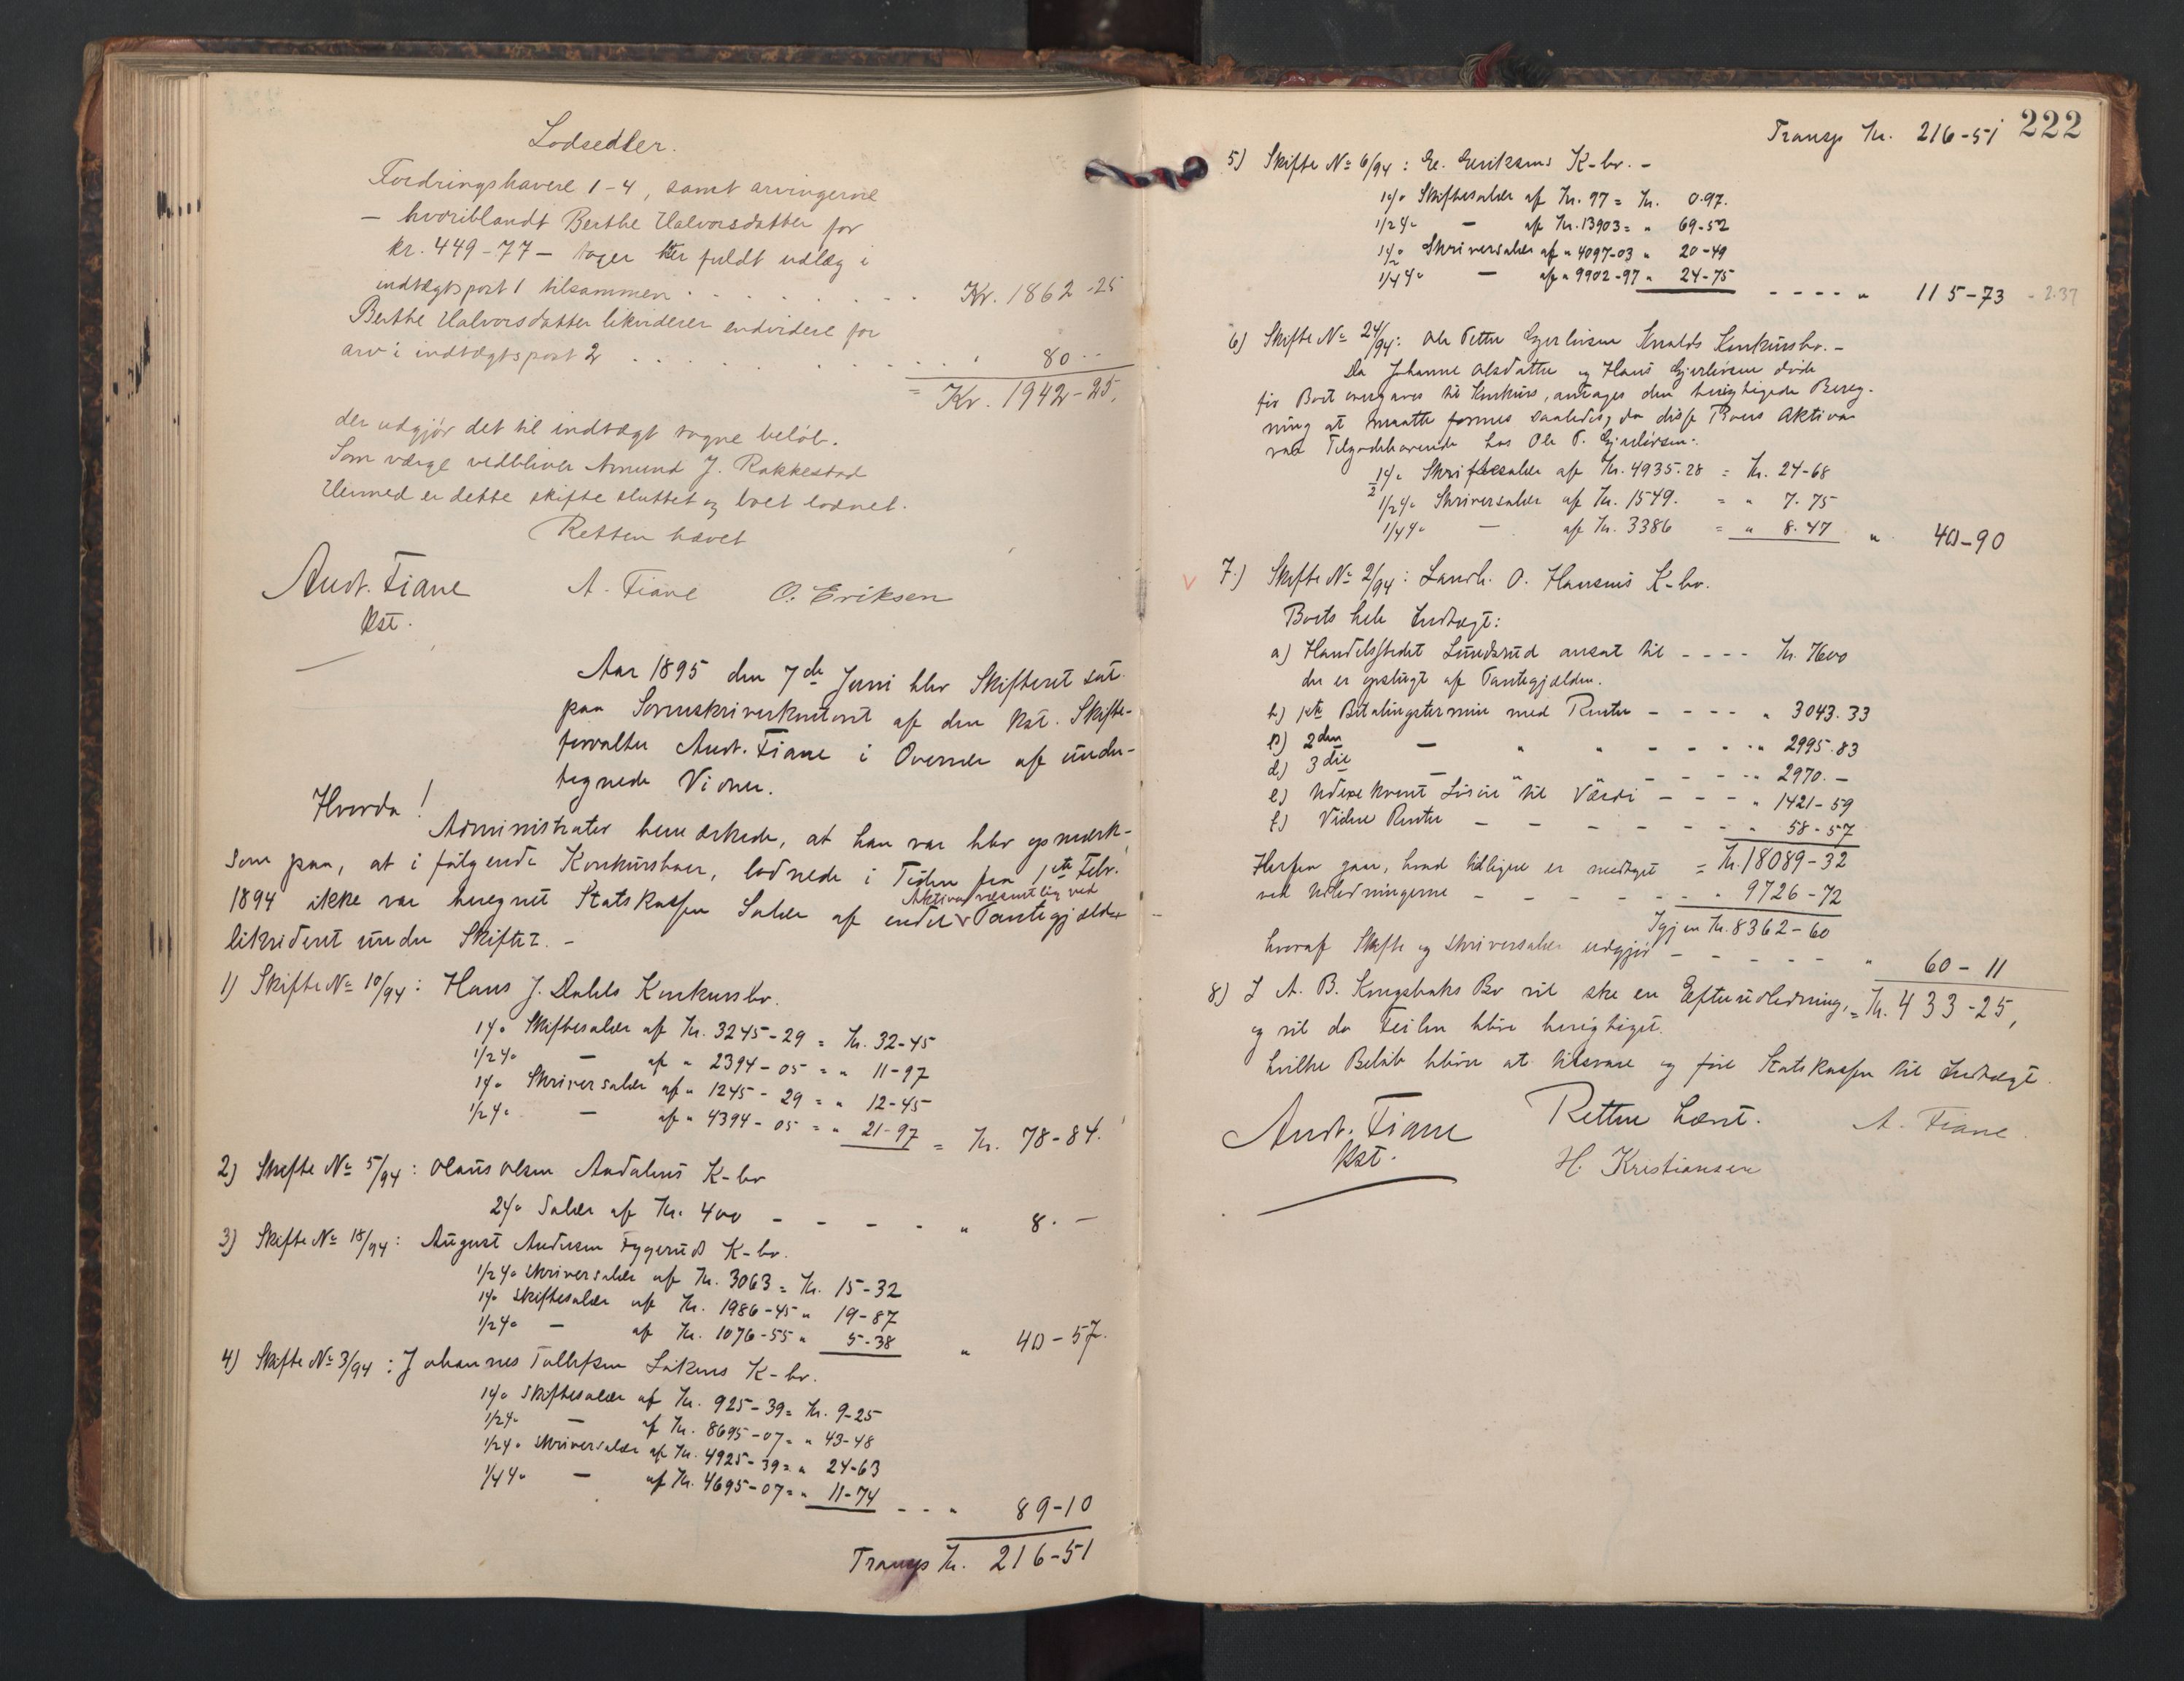 Lodsedler.
Fordringshavere 1-4, samt arvingerne
— hvoriblandt Berthe Halvorsdatter for
kr. 449-77 — tager her fuldt udlæg i
indtægtspost 1 tilsammen . . . . . . . Kr. 1862-25
Berthe Halvorsdatter likviderer endvidere for
arv i indtægtspost 2 . . . . . . . . " 80 --
= Kr. 1942-25.
der udgjör det til indtægt tagne belöb.
Som værge vedbliver Amund J. Rakkestad
Hermed er dette skifte sluttet og boet lodnet.
Retten hævet
Andr. Fiane A. Fiane O. Eriksen
Kst.
Aar 1895 den 7de Juni blev Skifteret sat
paa Sorenskriverkontoret af den Kst. Skifte-
forvalter Andr. Fiane i Overvær af under-
tegnede Vidner.
Hvorda!
Administrator bemærkede, at han var blev opmærk-
som paa, at i følgende Konkursboer, lodnede i Tiden fra 1ste Febr.
1894 ikke var beregnet Statskassen Salær af endel Aktiva væsentlig ved Pantegjælder
likvideret under Skiftet. -
1) Skifte No 10/94: Hans J. Dahls Konkursbo.
1% Skiftesalær af Kr. 3245-29 = Kr. 32-45
1/2% — af " 2394-05 = " 11-97
1% Skriversalær af " 1245-29 = " 12-45
1/2% — af " 4394-05 = " 21-97 = Kr. 78-84.
2) Skifte No 5/94: Olaus Olsen Andalens K-bo
2% Salær af Kr. 400 - - - - " 8. -
3) Skifte No 18/94: August Andersen Fygeruds K-bo.
1/2% Skriversalær af Kr. 3063 = Kr. 15-32
1% Skiftesalær af Kr. 1986-45 " 19-87
1/2% — af Kr. 1076-55 " 5-38 " 40-57.
4) Skifte No 3/94: Johannes Tollefsen Løkens K-bo.
1% Skiftesalær af Kr. 925-39 = Kr. 9-25
1/2% — af Kr. 8695-07 = " 43-48
1/2% Skriversalær af Kr. 4925-39 = " 24-63
1/4% — af Kr. 4695-07 = " 11-74 - - " 89-10
Transp Kr. 216-51
222
Transp Kr. 216-51
5) Skifte No 6/94: Er. Eriksens K-bo. -
1% Skiftesalær af Kr. 97 = Kr. 0.97.
1/2% — af Kr. 13903 = " 69-52
1/2% Skriversalær af " 4097-03 " 20-49
1/4% — af " 9902-97 " 24-75 - - - - " 115-73 - 2.37
6) Skifte No 24/94: Ole Petter Gjerlørsen Konkursbo. -
Da Johanne Olsdatter og Hans Gjerløvsen døde
før Boet overgaves til Konkurs, antages den berigtigede Bereg-
ning at maatte formes saaledes, da disse Boers Aktiva
var Tilgodehavende hos Ole P. Gjerløvsen:
1/2% Skiftesalær af Kr. 4935.28 = Kr. 24-68
1/2% Skriversalær af Kr. 1549. = " 7.75
1/4% — af Kr. 3386 = " 8.47 " 40-90
7.) Skifte No 2/94: Landh. O. Hansens K-bo.
Boets hele Indtægt:
a) Handelsstedet Lundsrud ansat til - - - - Kr. 7600
der er opslugt af Pantegjælden.
b) 1ste Betalingstermin med Renter - - - - " 3043.33
c) 2den — " " - - - - " 2995.83
d) 3die — " - - - - " 2970. -
e) Udexekveret Løsøre til Værdi - - - " 1421-59
f) Videre Renter - - - - - - " 58-57
= Kr. 18089-32
Herfra gaar, hvad tidligere er medtaget
ved Udlodningerne - - - - - " 9726-72
Igjen Kr. 8362-60
hvoraf Skifte og Skriversalær udgjør - - - - - " 60-11
8) I A. B. Kongsbaks Bo vil ske en Efterudlodning, = Kr. 433-25,
og vil da Feilen blive berigtiget.
hvilke Beløb bliver at tilsvare og føre Statskassen til Indtægt.
Retten hævet.
Andr. Fiane A. Fiane.
Kst. H. Kristiansen